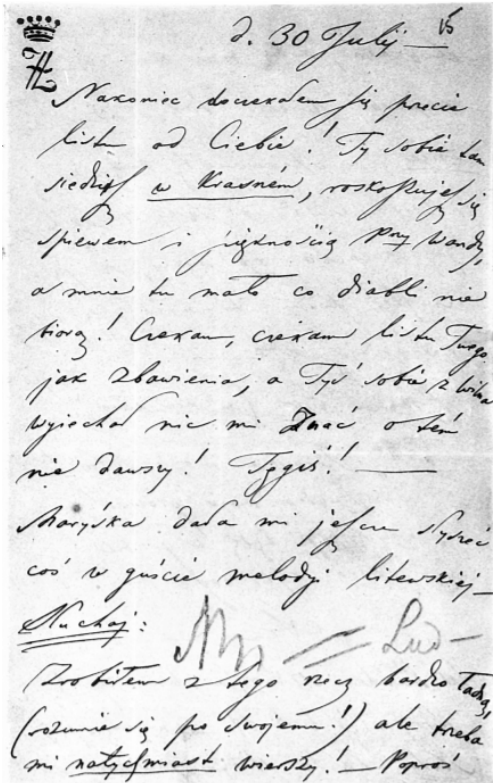 d. 30 Julij
Nakoniec doczekałem się przecie
listu od Ciebie! Ty sobie tam
siedzisz w Krasném, roskoszujesz się
śpiewem i pięknością Pny Wandy,
a mnie tu mało co diabli nie
biorą! Czekam, czekam listu Twego
jak zbawienia, a Tyś sobie z Wilna
wyjechał nic mi znać o tém
nie dawszy! Tęgiś!
Maryśka dała mi jeszcze słyszeć
coś w guście melodyi litewskiej
Słuchaj:
Zrobiłem z tego rzecz bardzo ładną,
(rozumie się po swojemu!) ale trzeba
mi natychmiast wierszy! Poproś